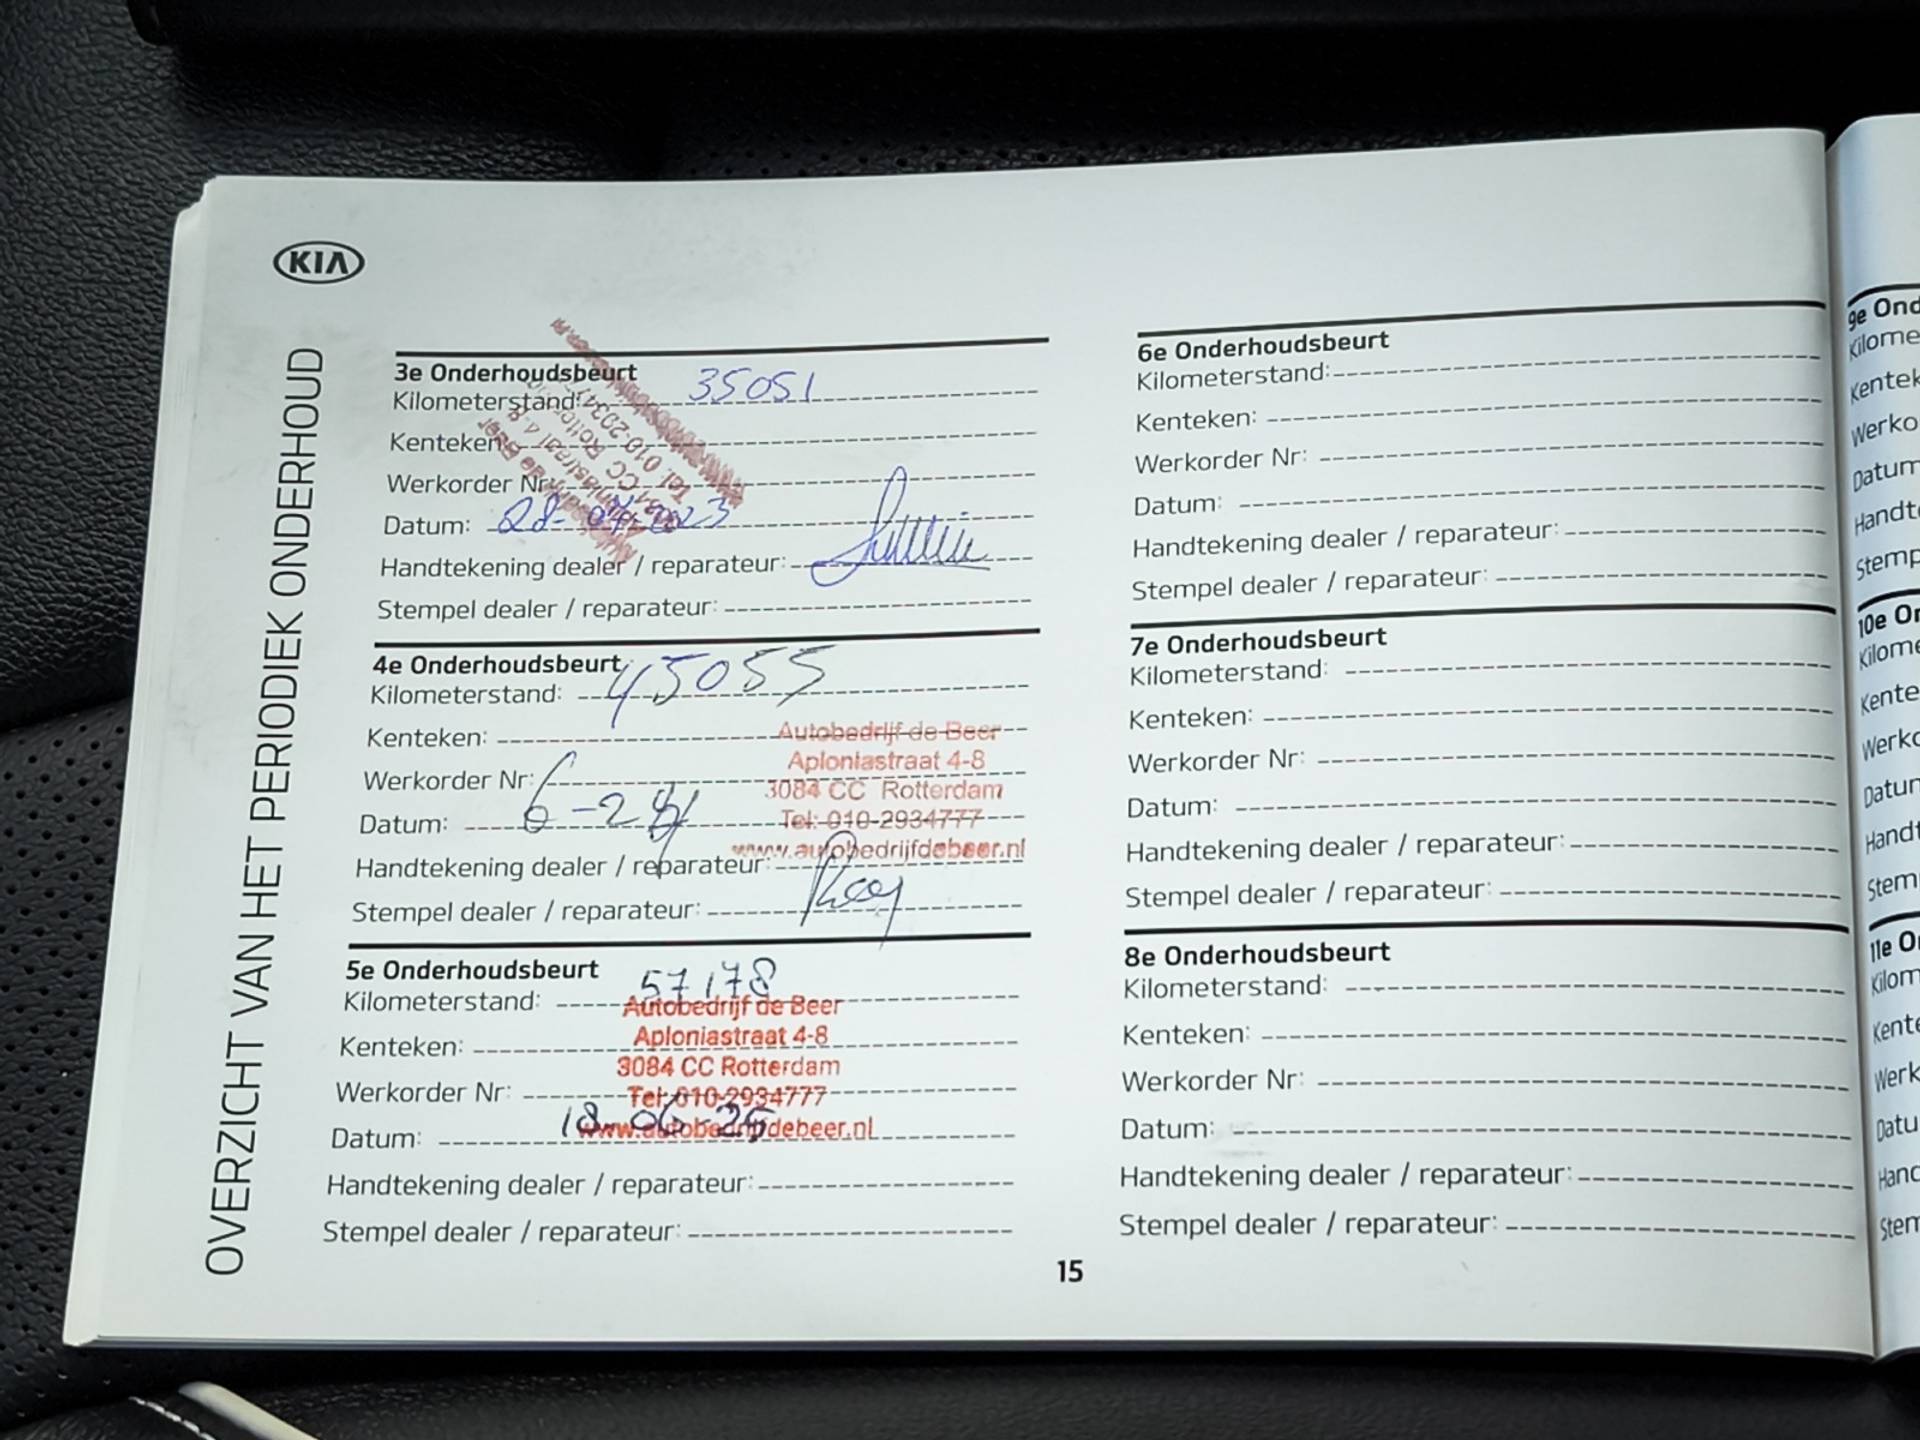 KIA
OVERZICHT VAN HET PERIODIEK ONDERHOUD
3e Onderhoudsbeurt
Kilometerstand: 35051
Kenteken:
Werkorder Nr:
Datum: 28-07-2023
Handtekening dealer / reparateur:
Stempel dealer / reparateur:
4e Onderhoudsbeurt
Kilometerstand: 45055
Kenteken:
Werkorder Nr:
Datum: 6-24
Handtekening dealer / reparateur:
Stempel dealer / reparateur:
Autobedrijf de Beer
Aploniastraat 4-8
3084 CC Rotterdam
Tel: 010-2934777
www.autobedrijfdebeer.nl
5e Onderhoudsbeurt
Kilometerstand: 57178
Kenteken:
Werkorder Nr:
Datum: 18-06-25
Handtekening dealer / reparateur:
Stempel dealer / reparateur:
Autobedrijf de Beer
Aploniastraat 4-8
3084 CC Rotterdam
Tel: 010-2934777
www.autobedrijfdebeer.nl
6e Onderhoudsbeurt
Kilometerstand:
Kenteken:
Werkorder Nr:
Datum:
Handtekening dealer / reparateur:
Stempel dealer / reparateur:
7e Onderhoudsbeurt
Kilometerstand:
Kenteken:
Werkorder Nr:
Datum:
Handtekening dealer / reparateur:
Stempel dealer / reparateur:
8e Onderhoudsbeurt
Kilometerstand:
Kenteken:
Werkorder Nr:
Datum:
Handtekening dealer / reparateur:
Stempel dealer / reparateur:
15
9e Ond
Kilome
Kentek
Werko
Datum
Handt
Stemp
10e Or
Kilome
Kente
Werko
Datur
Hand
Stem
11e O
Kilom
Kente
Werk
Datu
Hand
Stem